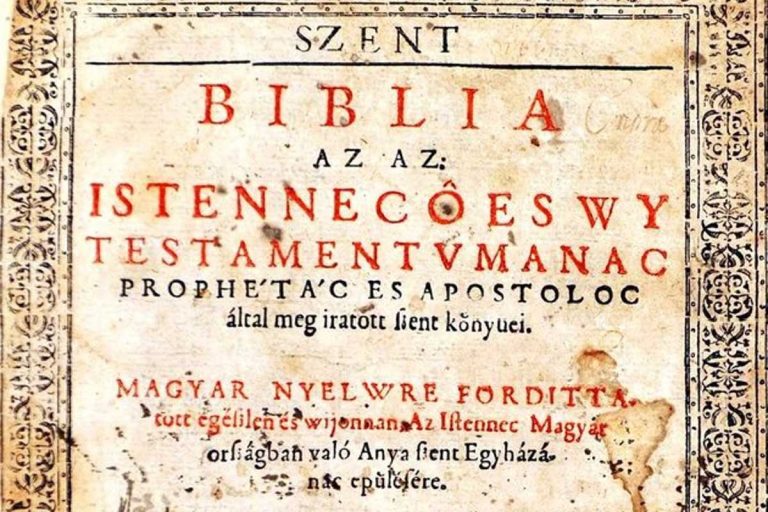 SZENT
BIBLIA
AZ AZ:
ISTENNEC Ô ES WY
TESTAMENTVMANAC
PROPHÉTÁC ES APOSTOLOC
által meg iratott ſzent kőnyuei.
MAGYAR NYELWRE FORDITTA-
tott egéſſlen és wijonnan, Az Iſtennec Magyar
orſzágban való Anya ſzent Egyházá-
nac epűléſére.